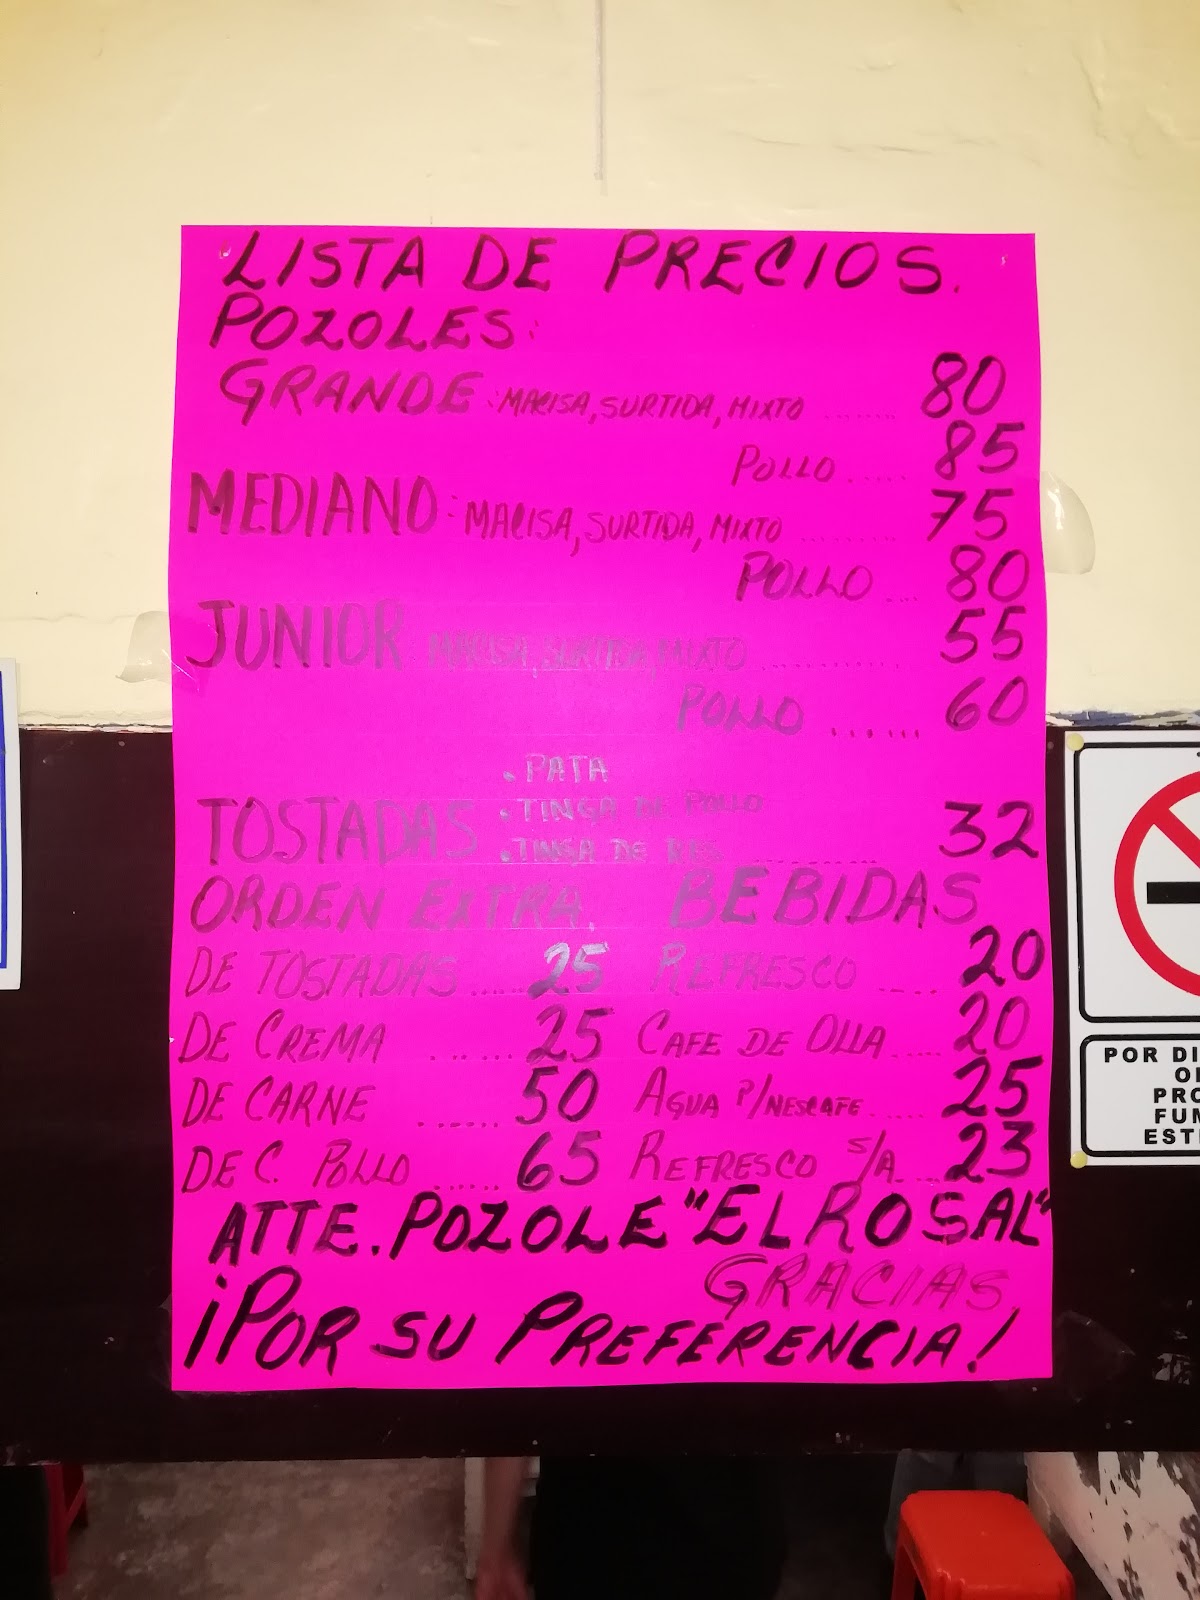 LISTA DE PRECIOS.
POZOLES:
GRANDE: MACISA, SURTIDA, MIXTO ........ 80
POLLO ..... 85
MEDIANO: MACISA, SURTIDA, MIXTO ......... 75
POLLO ... 80
JUNIOR MACISA, SURTIDA, MIXTO ......... 55
POLLO ...... 60
. PATA
. TINGA DE POLLO
TOSTADAS . TINGA DE RES ......... 32
ORDEN EXTRA. BEBIDAS
DE TOSTADAS ..... 25 REFRESCO .... 20
DE CREMA ...... 25 CAFE DE OLLA .... 20
DE CARNE ...... 50 AGUA P/NESCAFE .... 25
DE C. POLLO ..... 65 REFRESCO S/A. ... 23
ATTE. POZOLE "EL ROSAL"
GRACIAS
¡POR SU PREFERENCIA!
POR DI
PRO
FUM
EST